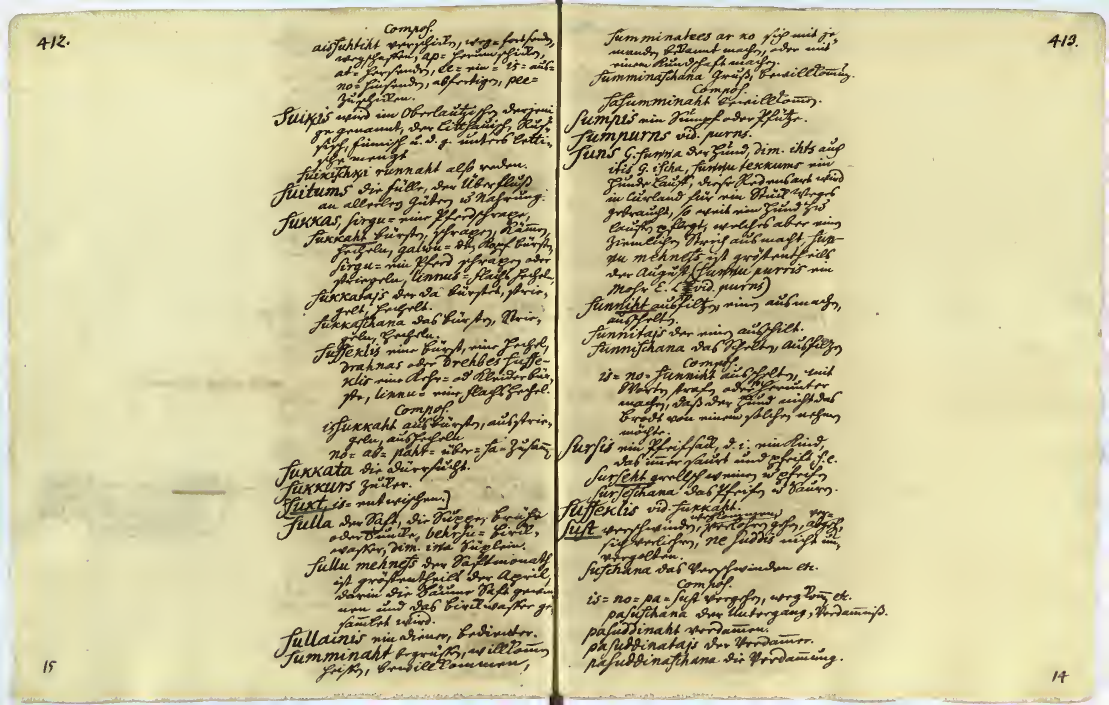 412.
Compos.
aissuhtiht verschiken, weg= fortsenden,
wegschaffen, ap= herumschiken,
at= hersenden, ee= ein= is= aus=
no= hinsenden, abfertigen, pee=
zuschiken.
Suikis wird im Oberlautzischen derjeni
ge genannt, der Litthauisch, Rus=
sisch, finnisch u. d. g. unters letti=
sche mengt
suikischki runnaht also reden.
Suitums die fülle, der Überfluß
an allerley Güter u Nahrung.
Sukkas, sirgu= eine Pferdschrape,
Sukkaht bürsten, schrapen, kämmen,
hecheln, galwu= den Kopf bürsten
sirgu= ein Pferd schrapen oder
striegeln, linnus= flachs hecheln,
Sukkatajs der da bürstet, strie=
gelt, hechelt.
Sukkaschana das bürsten, Strie=
geln, hecheln.
Suffeklis eine bürst, eine hechel,
drahnas oder drehbes suffe=
klis eine Kehr= od Kleiderbür=
ste, linnu= eine flachshechel.
Compos.
issukkaht ausbürsten, ausstrie=
geln, aushecheln
no= ab= pahr= über= sa= zusam̄
Sukkata die dürrsucht.
Sukkurs Zuker.
Sukt, is= entwischen.)
Sulla der Saft, die Suppe, brühe
oder Tunke, behrsu= birk=
wasser, dim. ina Süplein.
Sullu mehness der Saftmonath
ist gröstentheils der April,
darin die Bäume Saft gewin
nen und das birkwasser ge
samlet wird.
Sullainis ein diener, bedienter.
Summinaht begrüßen, willkomm
heißen, bewillkommen,
15
413.
Summinatees ar no sich mit je=
manden bekannt machen, oder mit
einem kundschaft machen.
Summinaschana Gruß, bewillkomm.
Compos.
Sasumminaht bewillkomm.
Sumpis ein Sumpf oder Pfütze.
Sumpurns vid. purns.
Suns G. sunna der Hund, dim. ihts auch
itis G. ischa, sunnu tekkums ein
Hunde Lauf, diese Redensart wird
in Curland für ein Stück Weges
gebraucht, so weit ein Hund zu
laufen pflegt, welches aber ein
ziemlichen Strich ausmacht sun=
nu mehness ist gröstentheils
der August (sunnu purris ein
Mohr E. L. vid. purns)
Sunniht ausfilzen, einen ausmachen,
ausschelten.
Sunnitajs der einen ausschilt.
Sunnischana das Schelten, Ausfilzen
Compos.
is= no= sunniht ausschelten, mit
Worten strafen oder herunter
machen, daß der Hund nicht das
Brodt von einem solchen nehmen
möchte.
Sursis ein Pfeifsak, d. i. ein Kind,
das immer saurt und pfeift S. E.
Surseht grellsch weinen u pfeifen
Surseschana das Pfeifen u Sauren.
Suffeklis vid. sukkaht.
Sust verschwinden, verlohren gehen,
sich verlieren, ne suddis nicht un=
vergolten.
Suschana das Verschwinden etc.
Compos.
is= no= pa= sust vergehen, wegkom̄en etc.
pasuschana der Untergang, Verdamniß.
pasuddinaht verdam̄en.
pasuddinatajs der Verdam̄er.
pasuddinaschana die Verdam̄ung.
14